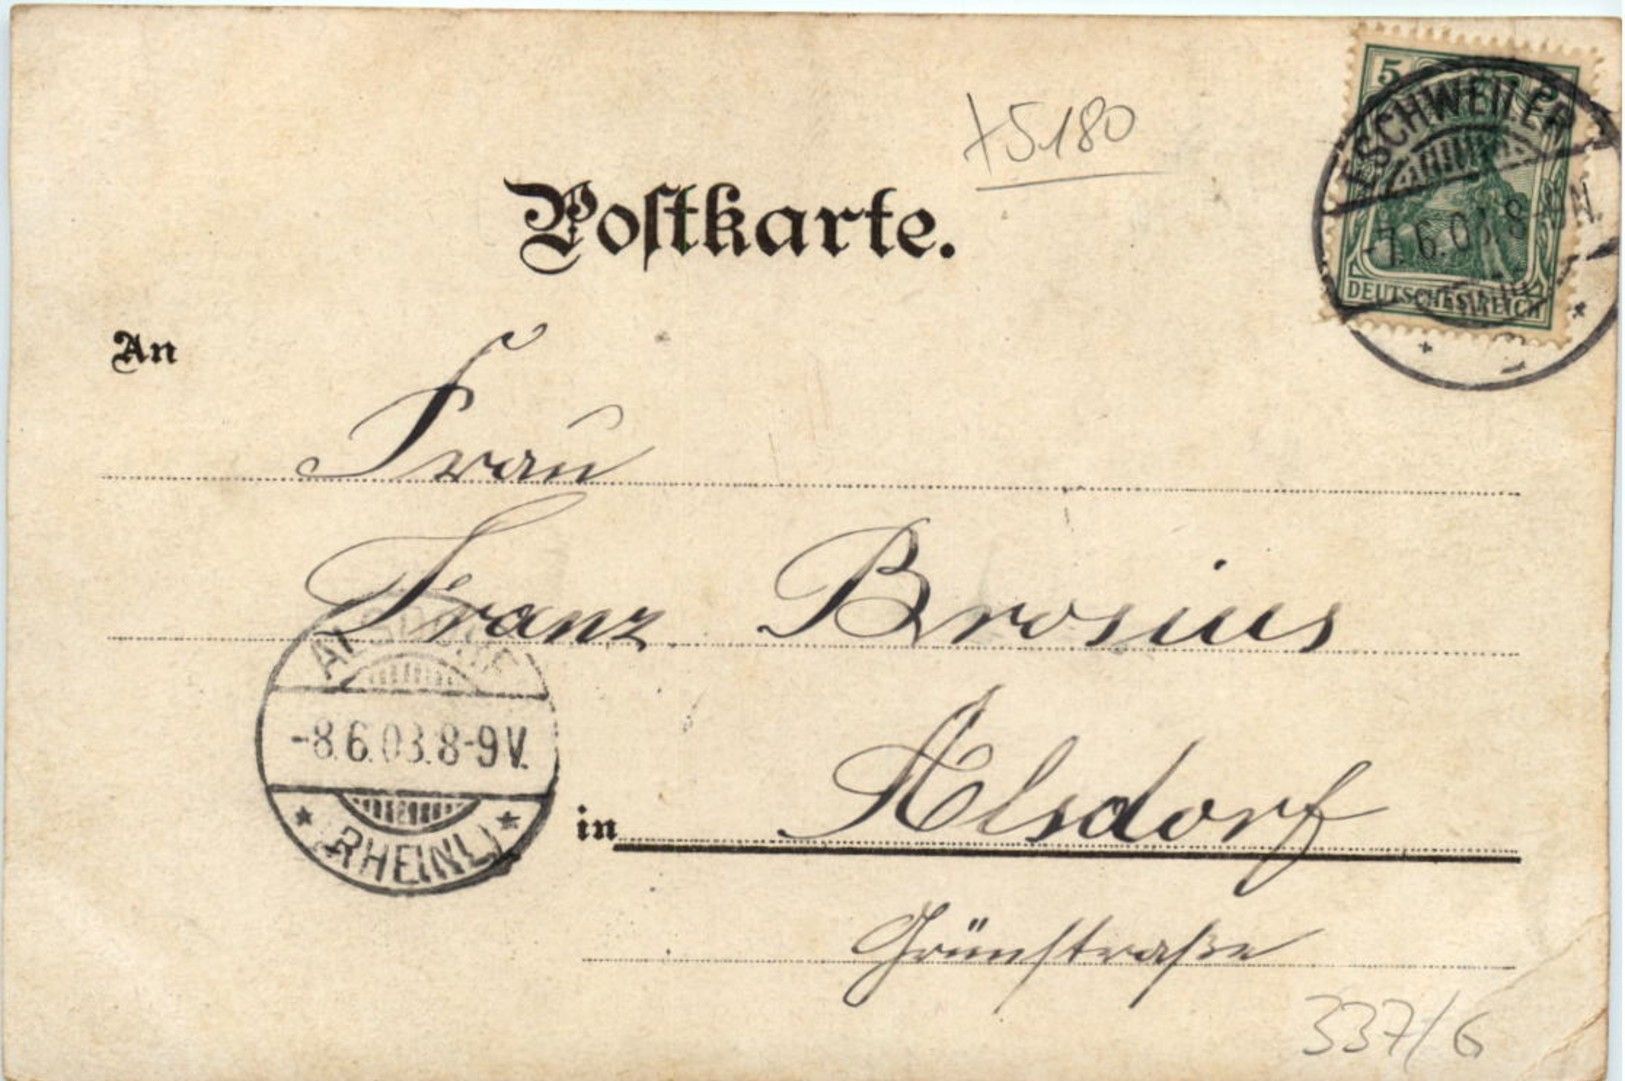 +5180
Postkarte.
5
ESCHWEILER
-7.6.03.8-9N.
DEUTSCHES REICH
An
Frau
Franz Brosius
ALSDORF
-8.6.03.8-9V.
(RHEINL)
in Alsdorf
Grünstraße
337/6